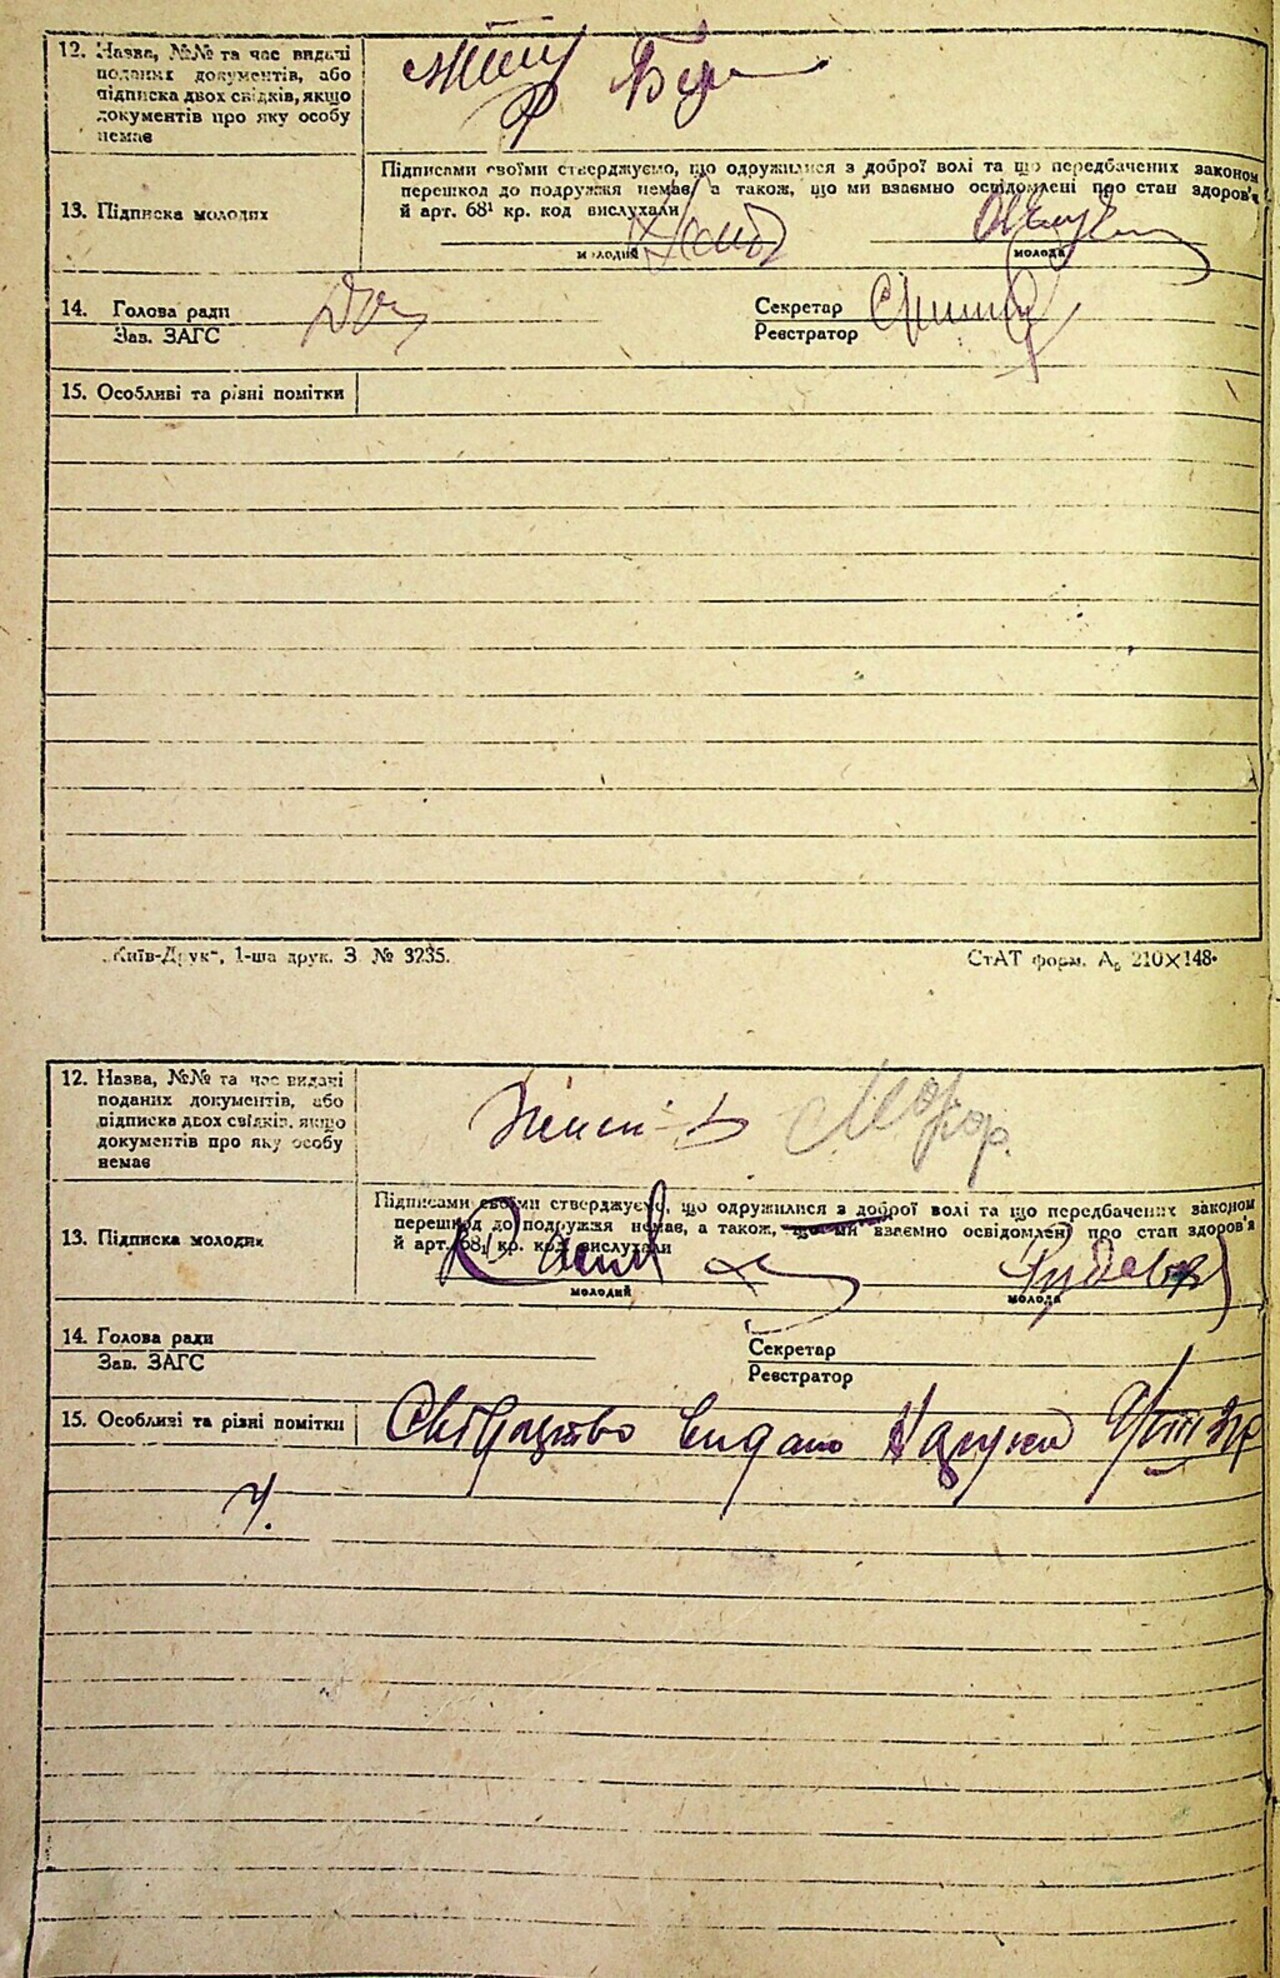 12. Назва, №№ та час видачі
поданих документів, або
підписка двох свідків, якщо
документів про яку особу
немає
13. Підписка молодих
Підписами своїми стверджуємо, що одружилися з доброї волі та що передбачених законом
перешкод до подружжя немає, а також, що ми взаємно освідомлені про стан здоров'я
й арт. 68¹ кр. код вислухали
молодий
молода
14. Голова ради
Зав. ЗАГС
Секретар
Реєстратор
15. Особливі та різні помітки
„Київ-Друк“, 1-ша друк. З. № 3235.
СтАТ форм. А₅ 210×148.
12. Назва, №№ та час видачі
поданих документів, або
підписка двох свідків, якщо
документів про яку особу
немає
13. Підписка молодих
Підписами своїми стверджуємо, що одружилися з доброї волі та що передбачених законом
перешкод до подружжя немає, а також, що ми взаємно освідомлені про стан здоров'я
й арт. 68₁ кр. код вислухали
молодий
молода
14. Голова ради
Зав. ЗАГС
Секретар
Реєстратор
15. Особливі та різні помітки
Свідоцтво видано